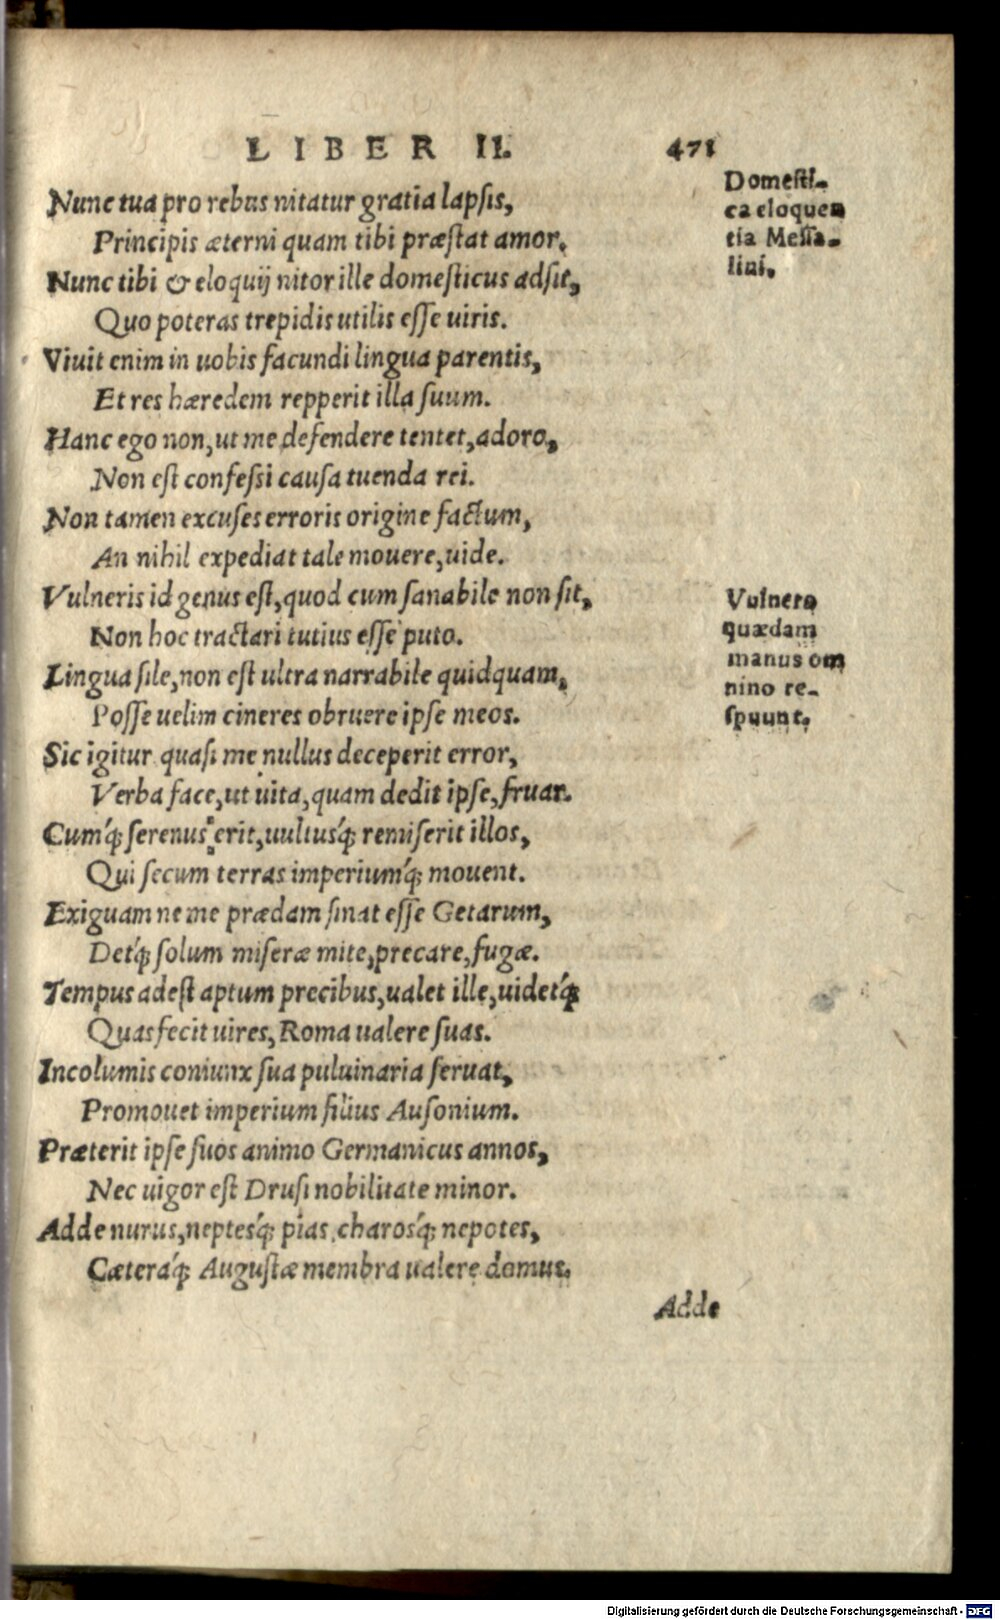 LIBER II. 471
Nunc tua pro rebus nitatur gratia lapsis,
Principis æterni quam tibi præstat amor.
Nunc tibi & eloquij nitor ille domesticus adsit,
Quo poteras trepidis utilis esse uiris.
Viuit enim in uobis facundi lingua parentis,
Et res hæredem repperit illa suum.
Hanc ego non, ut me defendere tentet, adoro,
Non est confessi causa tuenda rei.
Non tamen excuses erroris origine factum,
An nihil expediat tale mouere, uide.
Vulneris id genus est, quod cum sanabile non sit,
Non hoc tractari tutius esse puto.
Lingua sile, non est ultra narrabile quidquam,
Posse uelim cineres obruere ipse meos.
Sic igitur quasi me nullus deceperit error,
Verba face, ut uita, quam dedit ipse, fruar.
Cumq́; serenus erit, uultusq́; remiserit illos,
Qui secum terras imperiumq́; mouent.
Exiguam ne me prædam sinat esse Getarum,
Detq́; solum miseræ mite, precare, fugæ.
Tempus adest aptum precibus, ualet ille, uidetq́;
Quas fecit uires, Roma ualere suas.
Incolumis coniunx sua puluinaria seruat,
Promouet imperium filius Ausonium.
Præterit ipse suos animo Germanicus annos,
Nec uigor est Drusi nobilitate minor.
Adde nurus, neptesq́; pias, charosq́; nepotes,
Cæteraq́; Augustæ membra ualere domus.
Adde
Domesti-
ca eloquen
tia Messa-
lini.
Vulnera
quædam
manus om
nino re-
spuunt.
Digitalisierung gefördert durch die Deutsche Forschungsgemeinschaft - DFG